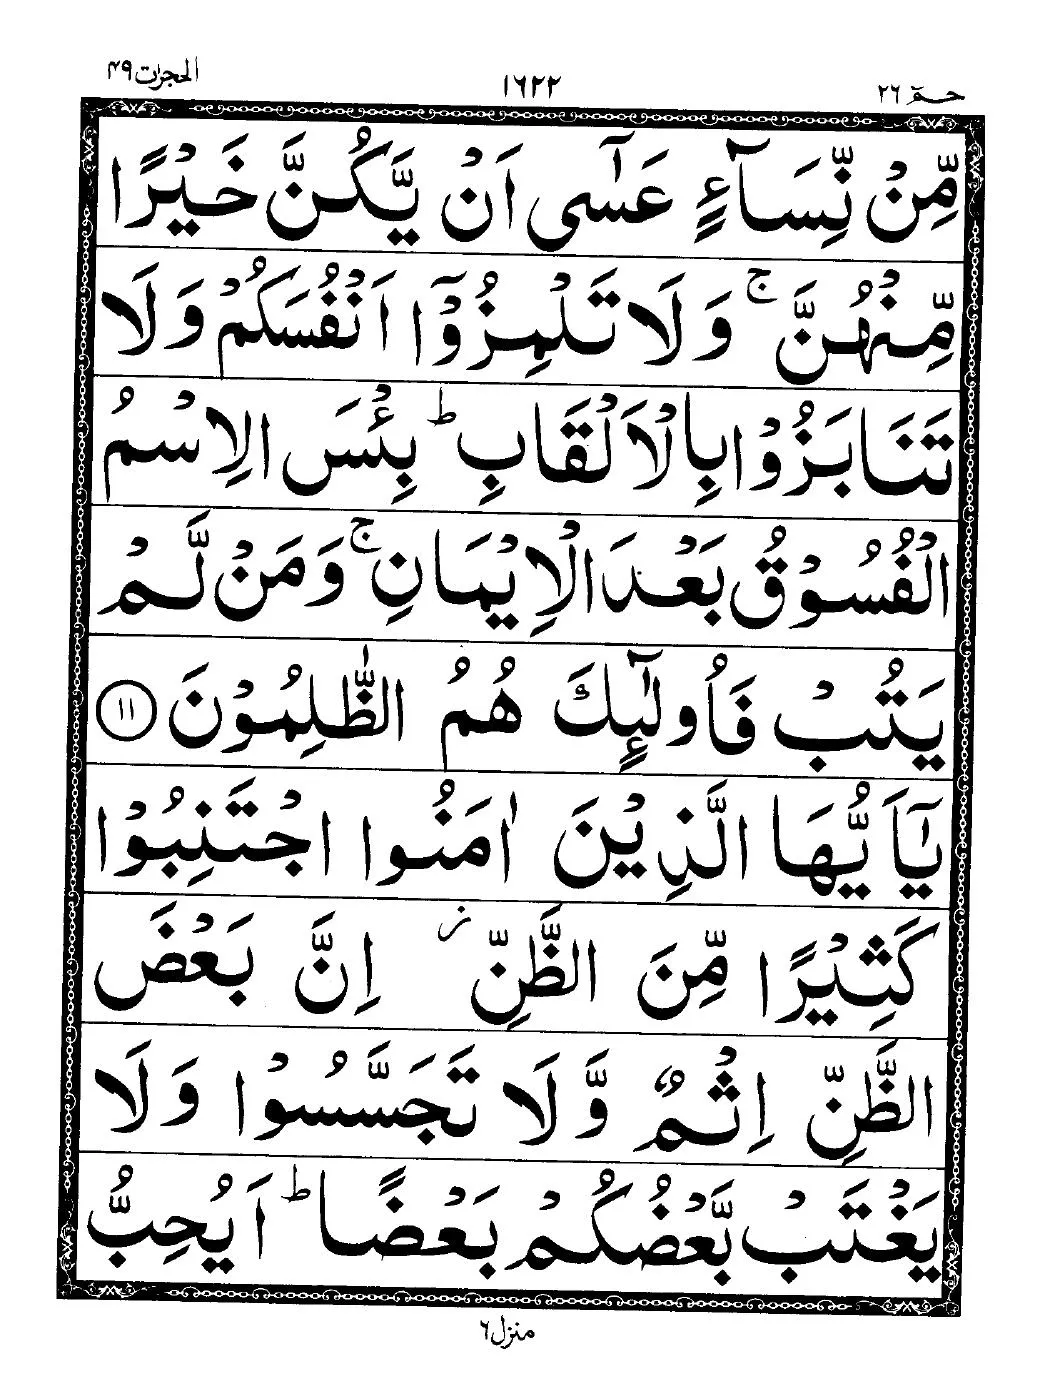 الحجرات ۴۹ ۱۶۲۲ حٰمٓ ۲۶
مِّنْ نِّسَآءٍ عَسٰۤى اَنْ يَّكُنَّ خَيْرًا
مِّنْهُنَّ ۚ وَلَا تَلْمِزُوْۤا اَنْفُسَكُمْ وَلَا
تَنَابَزُوْا بِالْاَلْقَابِ ؕ بِئْسَ الِاسْمُ
الْفُسُوْقُ بَعْدَ الْاِيْمَانِ ۚ وَمَنْ لَّمْ
يَتُبْ فَاُولٰٓئِكَ هُمُ الظّٰلِمُوْنَ ۝۱۱
يٰۤاَيُّهَا الَّذِيْنَ اٰمَنُوا اجْتَنِبُوْا
كَثِيْرًا مِّنَ الظَّنِّ ز اِنَّ بَعْضَ
الظَّنِّ اِثْمٌ وَّلَا تَجَسَّسُوْا وَلَا
يَغْتَبْ بَّعْضُكُمْ بَعْضًا ؕ اَيُحِبُّ
منزل ۶